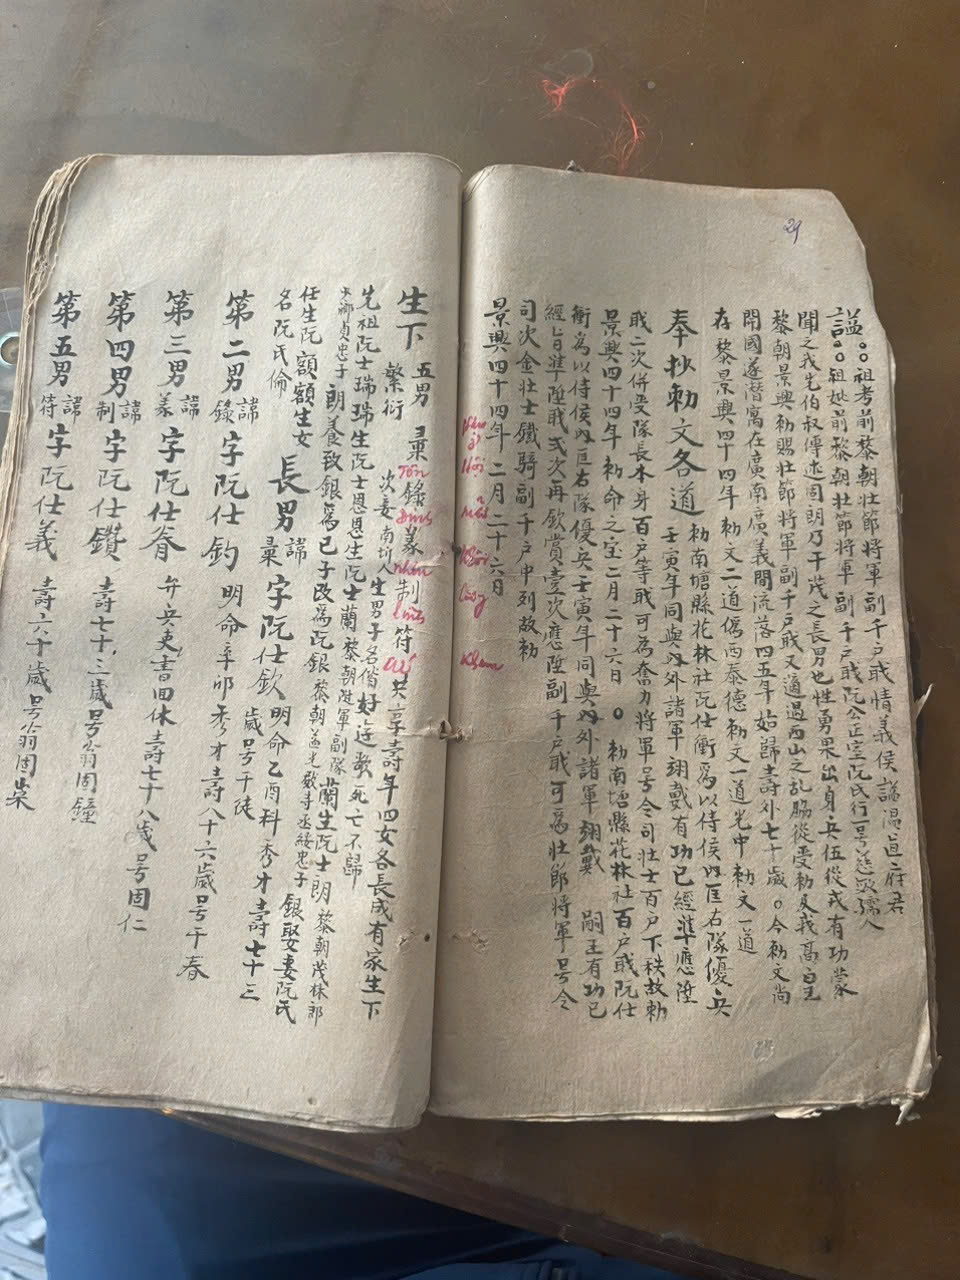 29
謚。。祖考前黎朝壯節將軍副千户職情義侯諡温直府君
。祖妣前黎朝壯節將軍副千户職阮公正室阮氏行一号慈 孺人
聞之我先伯叔傳述固朗乃干茂之長男也性勇果出身兵伍從戎有功蒙
黎朝景興勅賜壯節將軍副千户職又適遇西山之乱脇從受勅及我高皇
開國遂潜寓在廣南廣義間流落四五年始歸壽外七十歳。今勅文尚
存黎景興四十四年勅文二道僞西泰德勅文一道光中勅文一道
奉抄勅文各道
勅南塘縣花林社阮仕衝爲以侍侯内匡右隊優兵
壬寅年同與内外諸軍翊戴有功已經準應陞
職二次併受隊長本身百户等職可為奮力將軍号令司壯士百户下秩故勅
景興四十四年勅命之宝二月二十六日。勅南塘縣花林社百户職阮仕
衝為以侍侯内匡右隊優兵壬寅年同與内外諸軍翊戴 嗣王有功已
經旨準陞職弍次再欽賞壹次應陞副千户職可爲壯節將軍号令
司次金壮士鐵騎副千户中列故勅
景興四十四年二月二十六日
生下
五男 稟錄義制符共享壽年四女各長成有家生下
繁衍 次妾南圻人生男子名偕好遊歌死亡不歸
先祖阮士瑞瑞生阮士恩恩生阮士蘭黎朝陞軍副隊蘭生阮士朗黎朝茂林郎
貞忠子 朗養致銀爲已子改爲阮銀黎朝 光 寺丞 忠子銀娶妻阮氏
任生阮額額生女
名阮氏倫
長男
諱稟 字阮仕欽 明命乙酉科秀才壽七十三
歳号千徒
第二男 諱錄 字阮仕鈞 明命辛卯秀才壽八十六歳号千春
第三男 諱義 字阮仕脊 弁兵吏書回休壽七十八歳号固仁
第四男 諱制 字阮仕鑽 壽七十三歳号翁固鐘
第五男 諱符 字阮仕義 壽六十歳号翁固